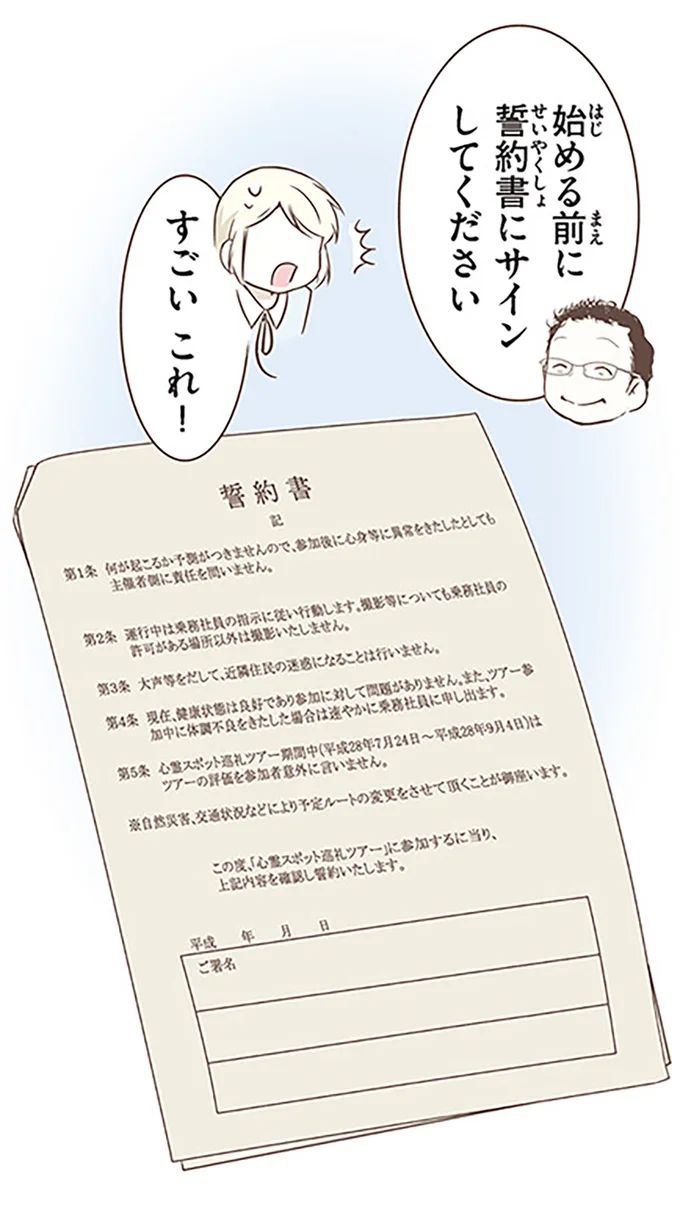 始める前に
誓約書にサイン
してください
はじ
まえ
せいやくしょ
すごい これ!
誓約書
記
第1条 何が起こるか予測がつきませんので、参加後に心身等に異常をきたしたとしても
主催者側に責任を問いません。
第2条 運行中は乗務社員の指示に従い行動します。撮影等についても乗務社員の
許可がある場所以外は撮影いたしません。
第3条 大声等をだして、近隣住民の迷惑になることは行いません。
第4条 現在、健康状態は良好であり参加に対して問題がありません。また、ツアー参
加中に体調不良をきたした場合は速やかに乗務社員に申し出ます。
第5条 心霊スポット巡礼ツアー期間中(平成28年7月24日~平成28年9月4日)は
ツアーの評価を参加者意外に言いません。
※自然災害、交通状況などにより予定ルートの変更をさせて頂くことが御座います。
この度、「心霊スポット巡礼ツアー」に参加するに当り、
上記内容を確認し誓約いたします。
平成 年 月 日
ご署名